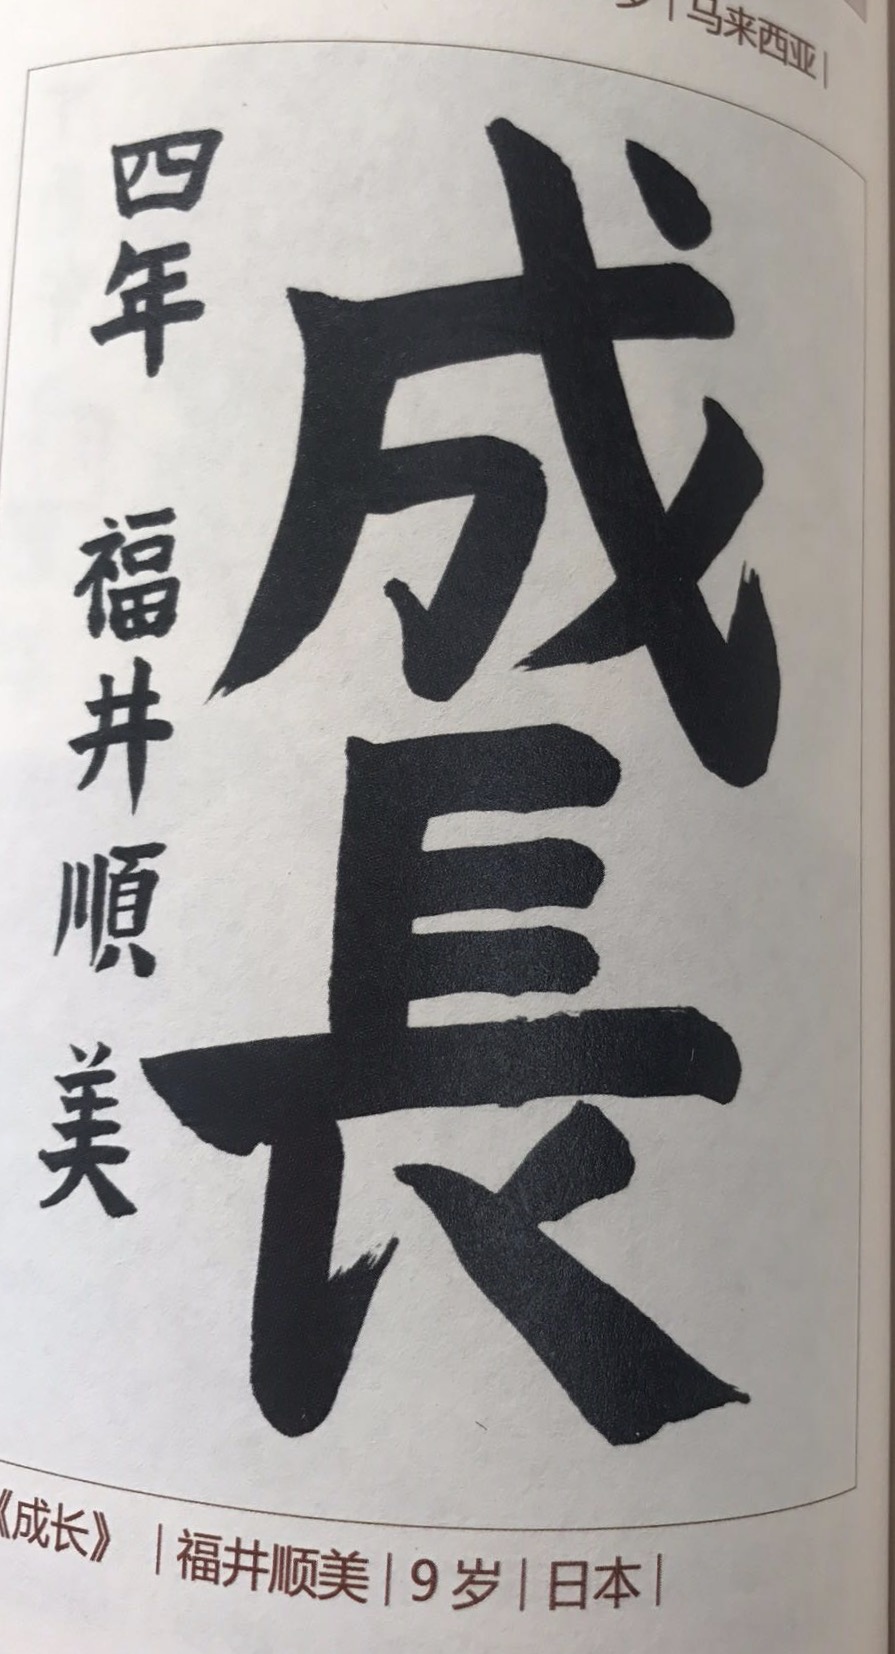 马来西亚|
成長
四年 福井順美
《成长》 |福井顺美|9岁|日本|